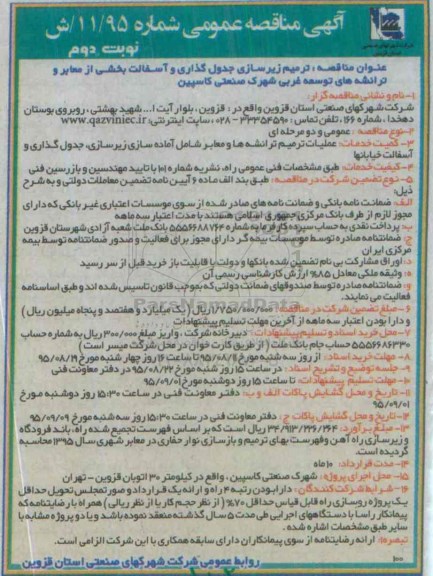 آگهی مناقصه عمومی شماره ۱۱/۹۵/ش
نوبت دوم
عنوان مناقصه : ترمیم زیرسازی جدول گذاری و آسفالت بخشی از معابر و
ترانشه های توسعه غربی شهرک صنعتی کاسپین
۱- نام و نشانی مناقصه گزار:
شرکت شهرکهای صنعتی استان قزوین واقع در: قزوین، بلوار آیت ا... شهید بهشتی، روبروی بوستان
دهخدا، شماره ۱۶۶، تلفن تماس : ۳۳۳۵۴۵۹۰ - ۰۲۸، سایت اینترنتی: www.qazviniec.ir
۲-نوع مناقصه : عمومی و دو مرحله ای
۳- کمیت خدمات: عملیات ترمیم ترانشه ها و معابر شامل آماده سازی زیرسازی، جدول گذاری و
آسفالت خیابانها
۴-کیفیت خدمات: طبق مشخصات فنی عمومی راه، نشریه شماره ۱۰۱ با تایید مهندسین و بازرسین فنی
۵- نوع تضمین شرکت در مناقصه : طبق بند الف ماده ۶ آیین نامه تضمین معاملات دولتی و به شرح
ذیل:
الف: ضمانت نامه بانکی و ضمانت نامه های صادره از سوی موسسات اعتباری غیر بانکی که دارای
مجوز لازم از طرف بانک مرکزی جمهوری اسلامی هستند با مدت اعتبار سه ماهه
ب: پرداخت نقدی به حساب سپرده کارفرما به شماره ۵۵۵۶۶۸۸۷۶۴ بانک ملت شعبه آزادی شهرستان قزوین
ج: ضمانتنامه صادره توسط موسسات بیمه گر دارای مجوز برای فعالیت و صدور ضمانتنامه توسط بیمه
مرکزی ایران
د: اوراق مشارکت بی نام تضمین شده بانکها و دولت با قابلیت باز خرید قبل از سر رسید
ه: وثیقه ملکی معادل ۸۵% ارزش کارشناسی رسمی آن
و: ضمانتنامه صادره توسط صندوقهای ضمانت دولتی که بموجب قانون تاسیس شده اند و طبق اساسنامه
فعالیت می نمایند.
۶- مبلغ تضمین شرکت در مناقصه : ۱/۷۵۰/۰۰۰/۰۰۰ ریال ( یک میلیارد و هفتصد و پنجاه میلیون ریال )
و دارا بودن اعتبار سه ماهه از آخرین مهلت تسلیم پیشنهادات
۷- محل خرید اسناد و تسلیم پیشنهادات : دبیرخانه شرکت ، واریز مبلغ ۳۰۰/۰۰۰ ریال به شماره حساب
۵۵۵۶۶۸۶۳۳۰ حساب جام بانک ملت ( از طریق کارت خوان در محل شرکت میسر است )
۸- مهلت خرید اسناد : از روز سه شنبه مورخ ۹۵/۰۸/۱۱ تا ساعت ۱۶ روز چهار شنبه مورخ ۹۵/۰۸/۱۹
۹- جلسه توضیح و تشریح اسناد : در ساعت ۱۵ روز شنبه مورخ ۹۵/۰۸/۲۲ در دفتر معاونت فنی
۱۰- مهلت تسلیم پیشنهادات: تا ساعت ۱۵ روز دوشنبه مورخ ۹۵/۰۹/۰۱
۱۱- تاریخ و محل گشایش پاکات الف و ب: دفتر معاونت فنی در ساعت ۱۵:۳۰ روز دوشنبه مورخ
۹۵/۰۹/۰۱
۱۲- تاریخ و محل گشایش پاکات ج : دفتر معاونت فنی در ساعت ۱۵:۳۰ روز سه شنبه مورخ ۹۵/۰۹/۰۹
۱۳- مبلغ برآورد: ۳۴/۹۱۳/۲۲۶/۲۶۴ ریال است که بر اساس فهرست تجمیع شده راه، باند فرودگاه
و زیرسازی راه آهن و فهرست بهای ترمیم و بازسازی نوار حفاری در معابر شهری سال ۱۳۹۵ محاسبه
گردیده است.
۱۴- مدت قرارداد: ۱۰ ماه
۱۵- محل اجرای پروژه : شهرک صنعتی کاسپین ، واقع در کیلومتر ۳۰ اتوبان قزوین - تهران
۱۶- شرایط شرکت کنندگان : دارا بودن رتبه ۴ راه و ارائه یک قرارداد و صورتمجلس تحویل حداقل
یک پروژه روسازی راه قابل قیاس حداقل ۷۰% ( از نظر حجم کار یا از نظر ریالی ) همراه با رضایتنامه که
پیمانکار راسا با دستگاههای اجرایی طی مدت ۵ سال گذشته منعقد نموده باشد و یا دو پروژه مشابه با
سایر طبق مشخصات اشاره شده .
تبصره: ارائه رضایتنامه از سوی پیمانکاران دارای سابقه همکاری با این شرکت الزامی است.
روابط عمومی شرکت شهرکهای صنعتی استان قزوین